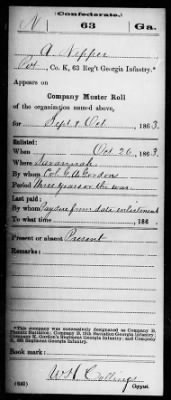 (Confederate.)
N 63 Ga.
A. Nipper
Pvt, Co. K, 63 Reg't Georgia Infantry.*
Appears on
Company Muster Roll
of the organization named above,
for Sept & Oct, 1863.
Enlisted:
When Oct 26, 1863.
Where Savannah
By whom Col. G. A. Gordon
Period Three years or the war
Last paid:
By whom
To what time, 186 .
Present or absent Present
Remarks:
*This company was successively designated as Company B,
Phoenix Battalion; Company B, 13th Battalion Georgia Infantry;
Company K, Gordon's Regiment Georgia Infantry; and Company
K, 63d Regiment Georgia Infantry.
Book mark:
(635)
Copyist.